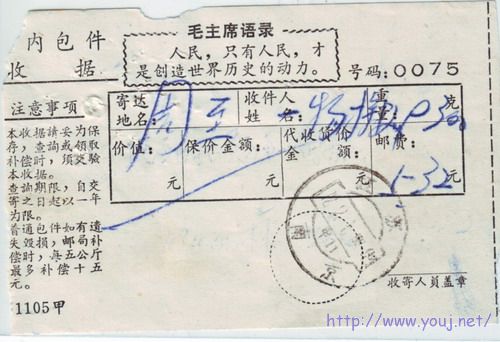 内包件
收据
毛主席语录
人民，只有人民，才
是创造世界历史的动力。
号码:0075
寄达
地名
周至
收件人
姓名:
重
量:
克
价值:
元
保价金额:
元
代收货价
金额:
元
邮费:
1-32元
注意事项
本收据请妥为保
存，查詢或领取
补偿时，须交验
本收据。
查詢期限，自交
寄之日起以一年
为限。
普通包件如有遗
失毁损，邮局补
偿时，每五公斤
最多补偿十五
元。
收寄人员盖章
1105甲
http://www.youj.net/